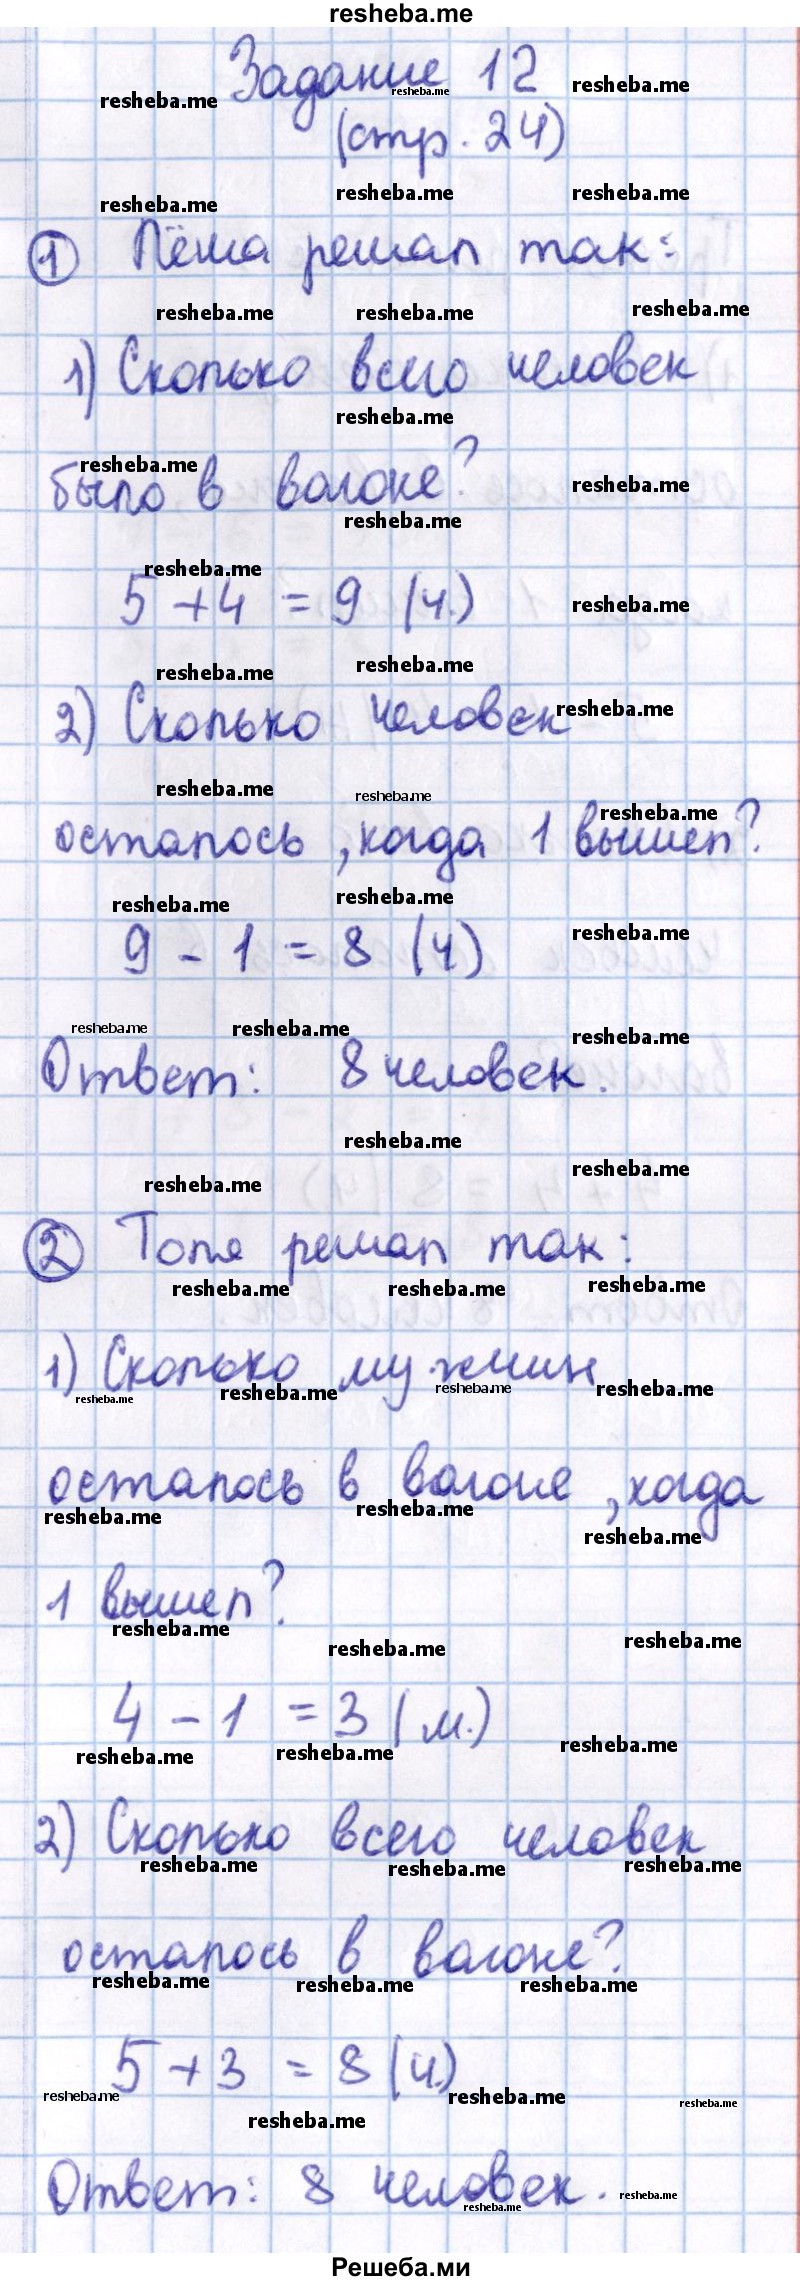 resheba.me
Задание 12
(стр. 24)
① Лёша решал так:
1) Сколько всего человек
было в вагоне?
5 + 4 = 9 (ч.)
2) Сколько человек
осталось, когда 1 вышел?
9 - 1 = 8 (ч)
Ответ: 8 человек.
② Толя решал так:
1) Сколько мужчин
осталось в вагоне, когда
1 вышел?
4 - 1 = 3 (м.)
2) Сколько всего человек
осталось в вагоне?
5 + 3 = 8 (ч.)
Ответ: 8 человек.
Решеба.ми